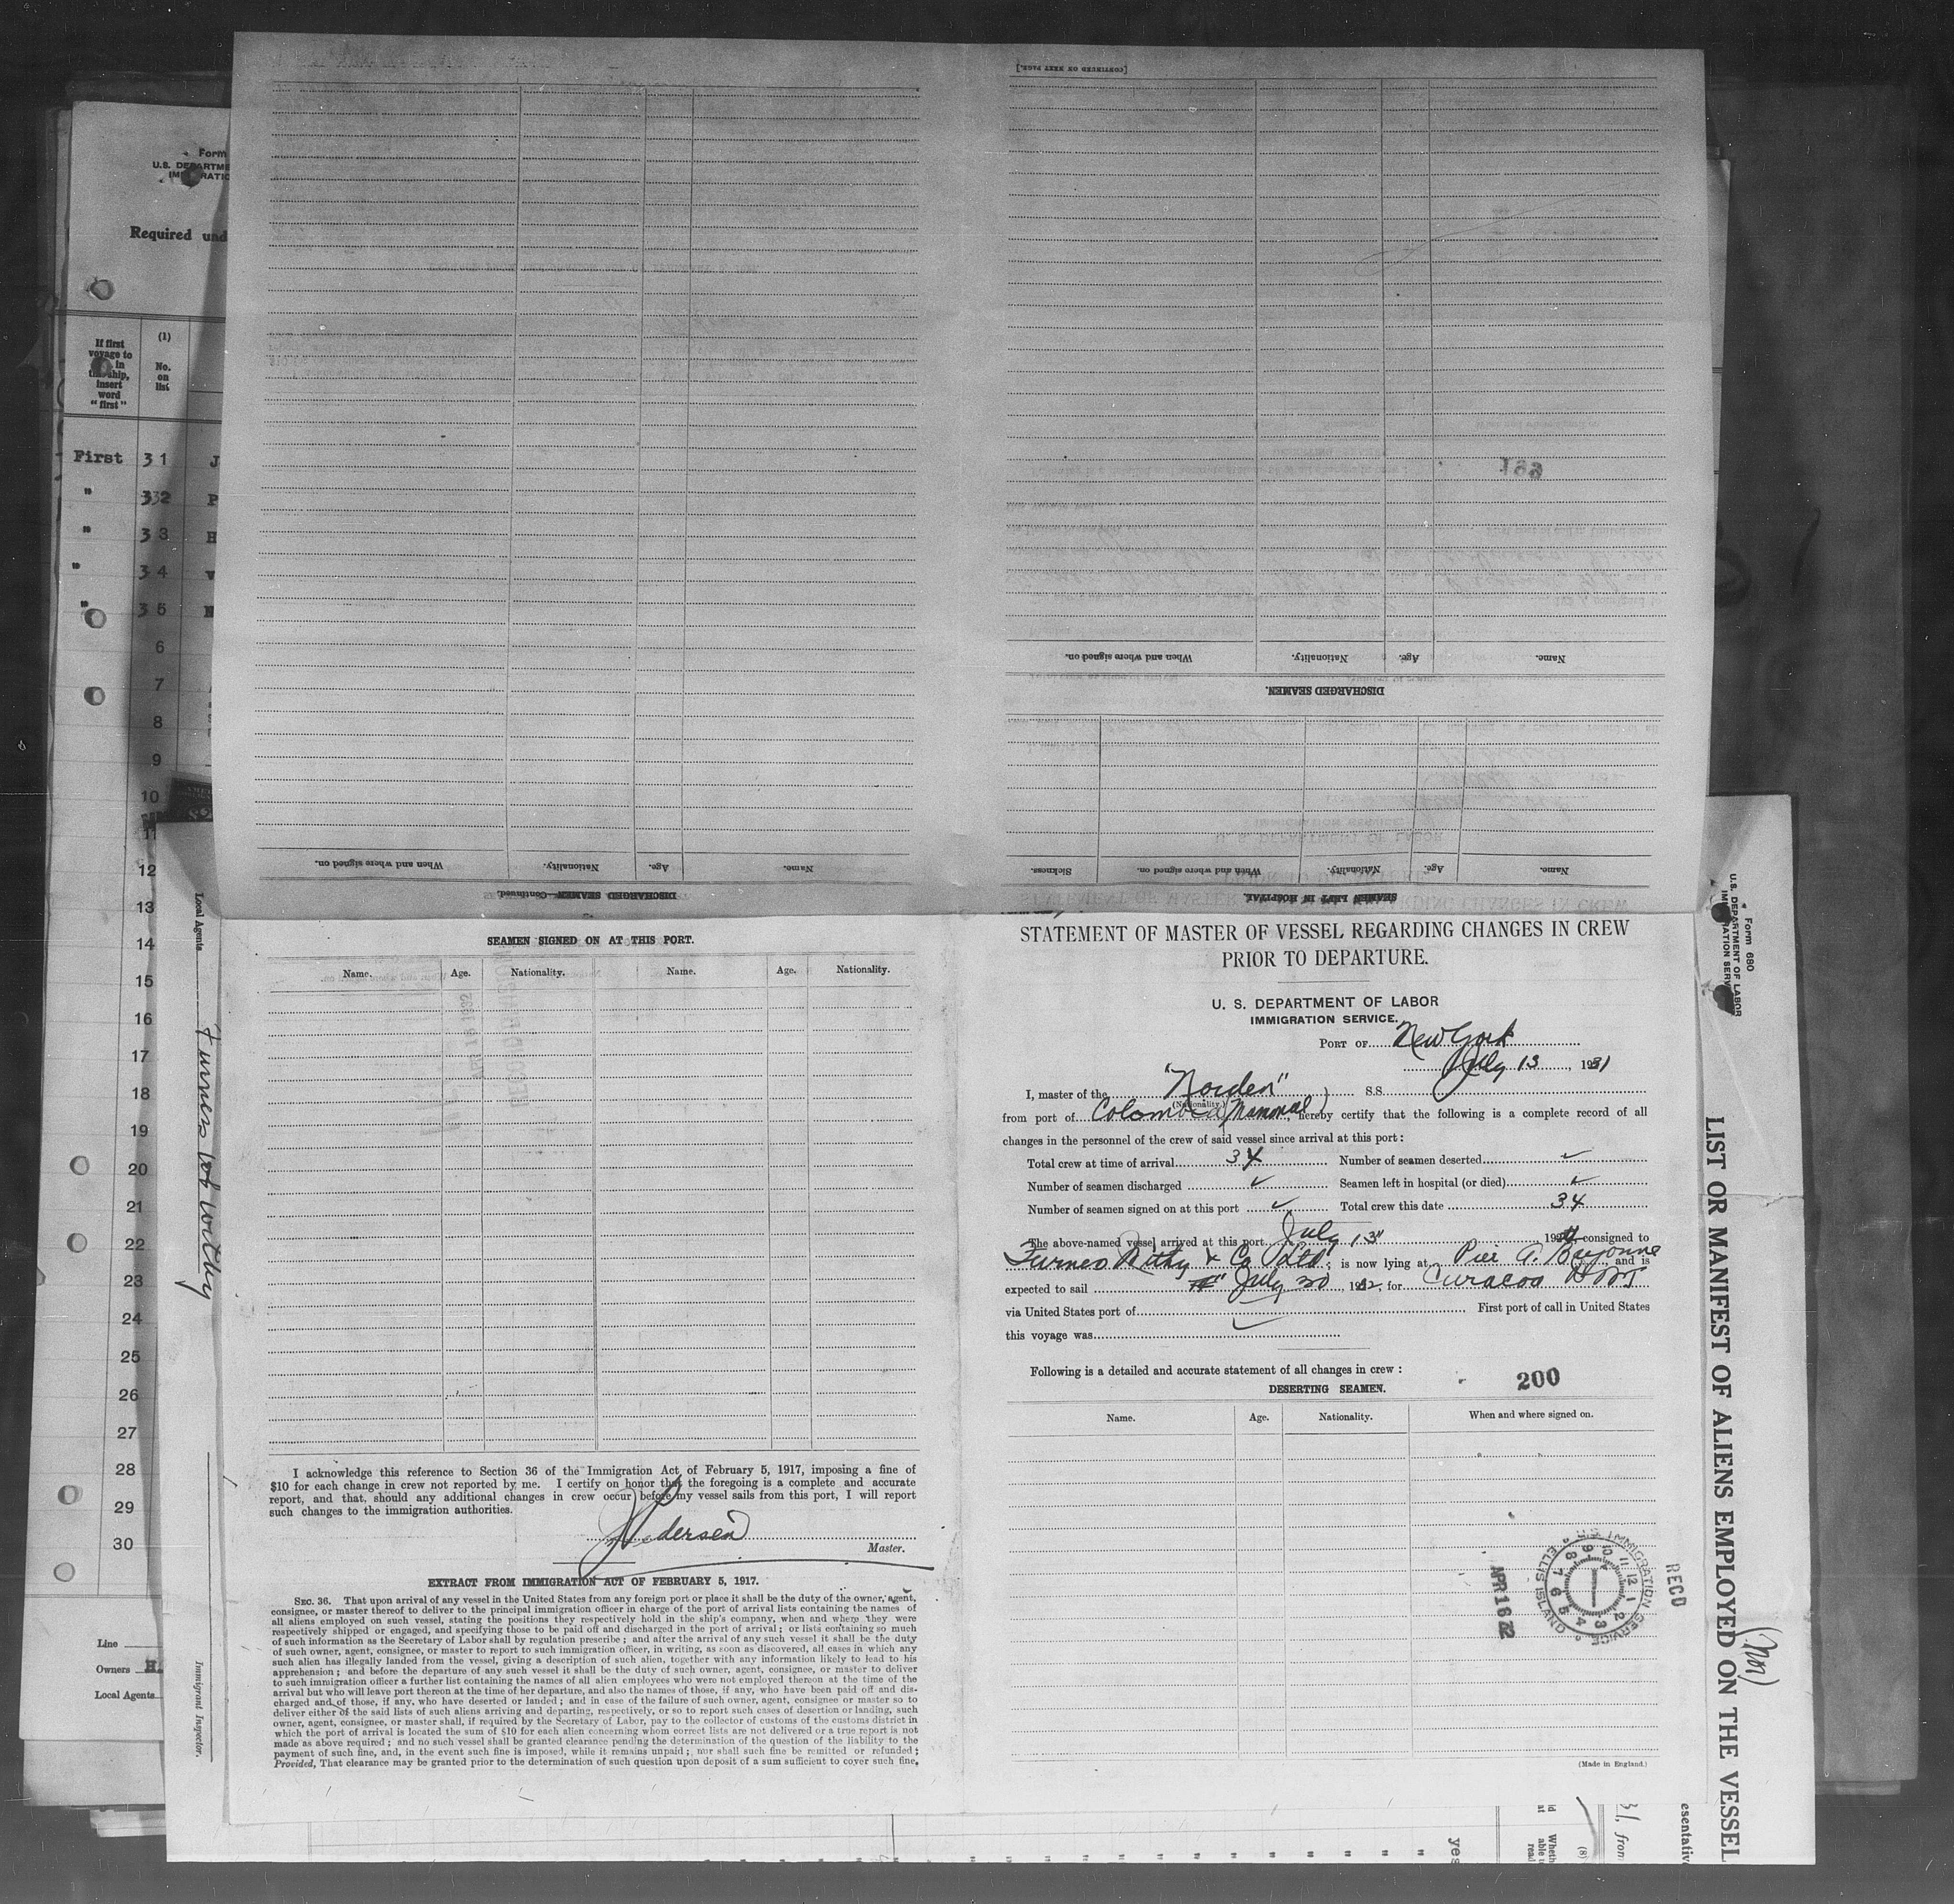 Form
U.S. DEPARTME
IMMIGRATIO
Required und
If first
voyage to
in
ship,
insert
word
"first"
(1)
No.
on
list
First 31 J
" 332 P
" 33 H
" 34 v
" 35
6
7
8
9
10
11
12
13
14
15
16
17
18
19
20
21
22
23
24
25
26
27
28
29
30
Line
Owners H.
Local Agents
[CONTINUED ON NEXT PAGE.]
183
Name. Age. Nationality. When and where signed on.
DISCHARGED SEAMEN.
Name. Age. Nationality. When and where signed on. Sickness.
SEAMEN LEFT IN HOSPITAL.
Name. Age. Nationality. When and where signed on.
DISCHARGED SEAMEN—Continued.
Local Agents Furness Withy
Immigrant Inspector.
SEAMEN SIGNED ON AT THIS PORT.
Name. Age. Nationality. Name. Age. Nationality.
I acknowledge this reference to Section 36 of the Immigration Act of February 5, 1917, imposing a fine of
$10 for each change in crew not reported by me. I certify on honor that the foregoing is a complete and accurate
report, and that, should any additional changes in crew occur before my vessel sails from this port, I will report
such changes to the immigration authorities.
Pedersen
Master.
EXTRACT FROM IMMIGRATION ACT OF FEBRUARY 5, 1917.
SEC. 36. That upon arrival of any vessel in the United States from any foreign port or place it shall be the duty of the owner, agent,
consignee, or master thereof to deliver to the principal immigration officer in charge of the port of arrival lists containing the names of
all aliens employed on such vessel, stating the positions they respectively hold in the ship's company, when and where they were
respectively shipped or engaged, and specifying those to be paid off and discharged in the port of arrival; or lists containing so much
of such information as the Secretary of Labor shall by regulation prescribe; and after the arrival of any such vessel it shall be the duty
of such owner, agent, consignee, or master to report to such immigration officer, in writing, as soon as discovered, all cases in which any
such alien has illegally landed from the vessel, giving a description of such alien, together with any information likely to lead to his
apprehension; and before the departure of any such vessel it shall be the duty of such owner, agent, consignee, or master to deliver
to such immigration officer a further list containing the names of all alien employees who were not employed thereon at the time of the
arrival but who will leave port thereon at the time of her departure, and also the names of those, if any, who have been paid off and dis-
charged and of those, if any, who have deserted or landed; and in case of the failure of such owner, agent, consignee or master so to
deliver either of the said lists of such aliens arriving and departing, respectively, or so to report such cases of desertion or landing, such
owner, agent, consignee, or master shall, if required by the Secretary of Labor, pay to the collector of customs of the customs district in
which the port of arrival is located the sum of $10 for each alien concerning whom correct lists are not delivered or a true report is not
made as above required; and no such vessel shall be granted clearance pending the determination of the question of the liability to the
payment of such fine, and, in the event such fine is imposed, while it remains unpaid; nor shall such fine be remitted or refunded;
Provided, That clearance may be granted prior to the determination of such question upon deposit of a sum sufficient to cover such fine.
STATEMENT OF MASTER OF VESSEL REGARDING CHANGES IN CREW
PRIOR TO DEPARTURE.
U. S. DEPARTMENT OF LABOR
IMMIGRATION SERVICE.
PORT OF New York
July 13, 1931
I, master of the "Norden" S.S.
(Nationality.)
from port of Colombia (Mamonal) hereby certify that the following is a complete record of all
changes in the personnel of the crew of said vessel since arrival at this port:
Total crew at time of arrival 34 Number of seamen deserted ✓
Number of seamen discharged ✓ Seamen left in hospital (or died) ✓
Number of seamen signed on at this port ✓ Total crew this date 34
The above-named vessel arrived at this port July 13" 192 consigned to
Furness Withy & Co Ltd; is now lying at Pier A. Bayonne and is
expected to sail July 20, 192, for Curacoa DWI
via United States port of First port of call in United States
this voyage was
Following is a detailed and accurate statement of all changes in crew:
200
DESERTING SEAMEN.
Name. Age. Nationality. When and where signed on.
U.S. IMMIGRATION SERVICE ELLIS ISLAND
RECD
APR 16 32
(Made in England.)
Form 680
U.S. DEPARTMENT OF LABOR
IMMIGRATION SERV
LIST OR MANIFEST OF ALIENS EMPLOYED ON THE VESSEL
(Nor)
esentativ
from
(8)
Wheth
able
read
yes